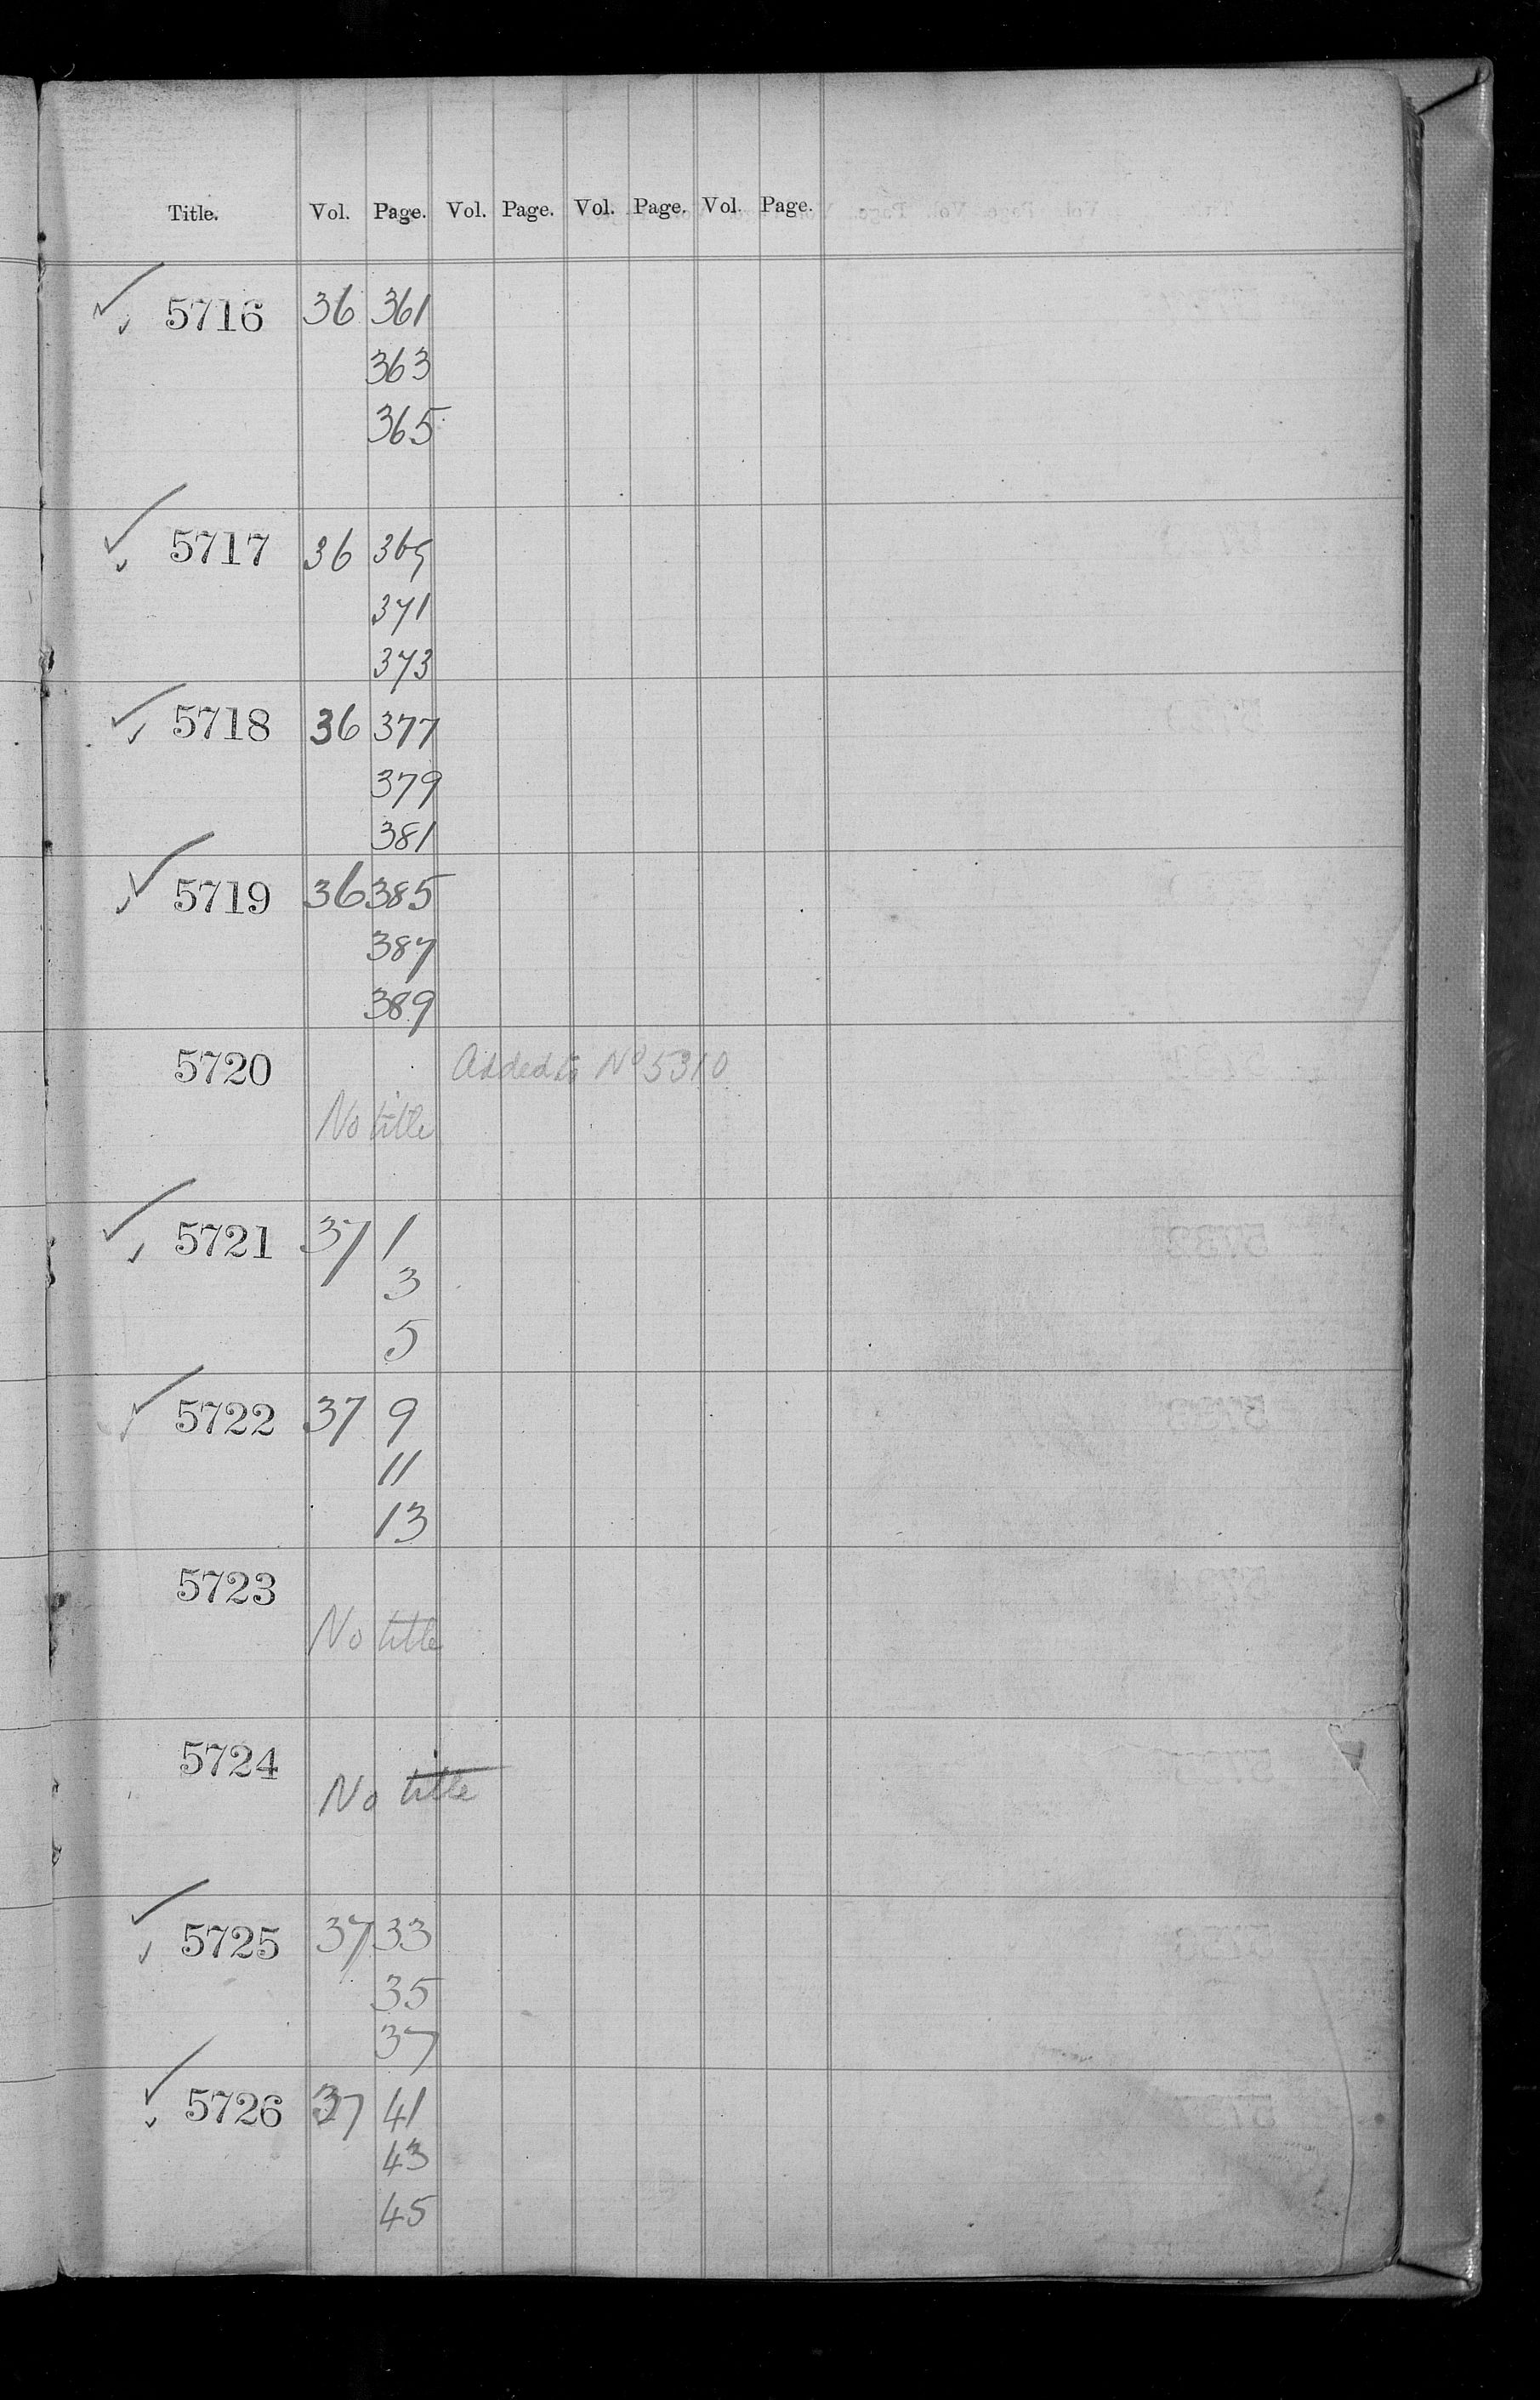 Title. Vol. Page. Vol. Page. Vol. Page. Vol. Page.
✓ ✓ 5716 36 361
363
365
✓ ✓ 5717 36 369
371
373
✓ ✓ 5718 36 377
379
381
✓ ✓ 5719 36 385
387
389
5720 Added to No 5310
No title
✓ ✓ 5721 37 1
3
5
✓ ✓ 5722 37 9
11
13
5723
No title
5724
No title
✓ ✓ 5725 37 33
35
37
✓ ✓ 5726 37 41
43
45